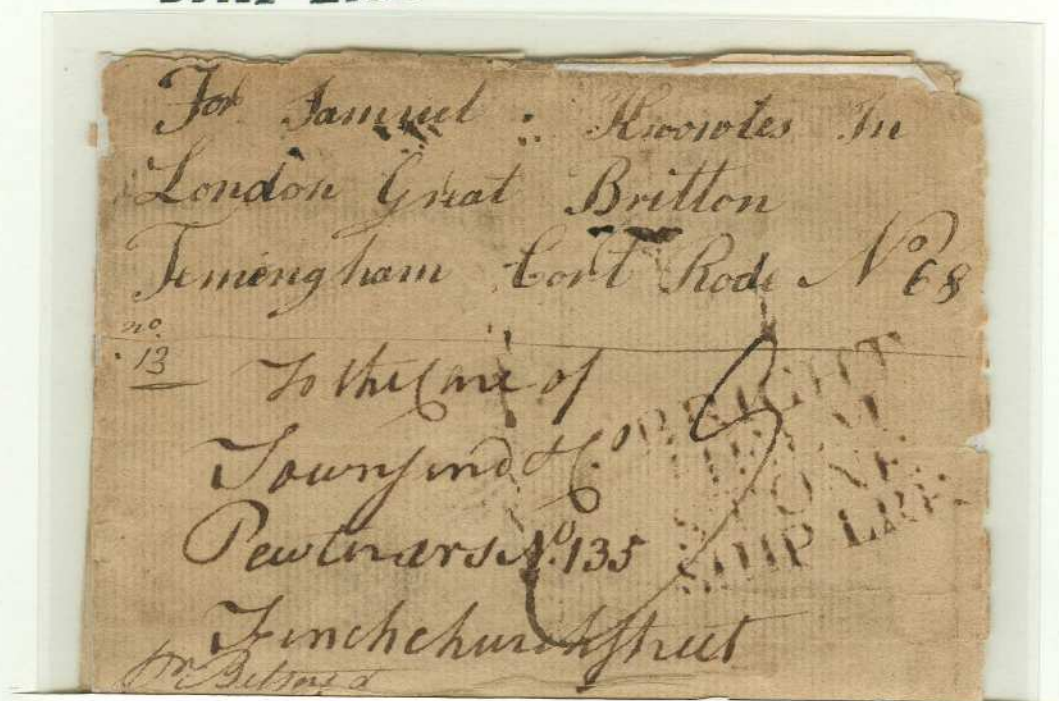 For Samuel : Knowles In
London Great Britton
Temingham Cort Rode No 68
no.
13
To the Care of
Townsend & Co
Pewterars No. 135
Finchchurch Street
BRIGHT
HELM
STONE
SHIP LRE